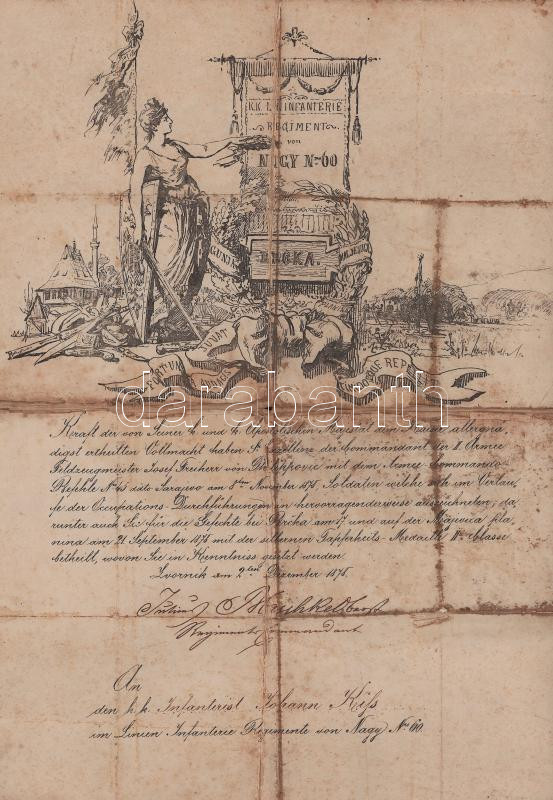 K.K. L. INFANTERIE
REGIMENT
von
NAGY No 60
BRČKA.
FORTUNA
JUVAT
darabanth
Kraft der von Seiner k. und k. Apostolischen Majestät dem Kaiser allergnä,
digst ertheilten Vollmacht haben Se Excellenz der Commandant der II. Armee
Feldzeugmeister Josef Freiherr von Philippovic mit dem Armee-Commando-
Befehle No 45 ddto Sarajevo am 8ten November 1878, Soldaten welche sich im Verlau,
fe der Occupations-Durchführungen in hervorragenderweise auszeichneten, da,
runter auch Sie für die Gefechte bei Brčka am 17. und auf der Majevica pla,
nina am 21. September 1878 mit der silbernen Tapferheits-Medaille IIter Classe
betheilt, wovon Sie in Kenntniss gesetzt werden.
Zvornik am 2ten Dezember 1878.
Julius
Regiments Commandant
An
den k.k. Infanterist Johann Kiss
im Linien Infanterie Regimente von Nagy No 60.